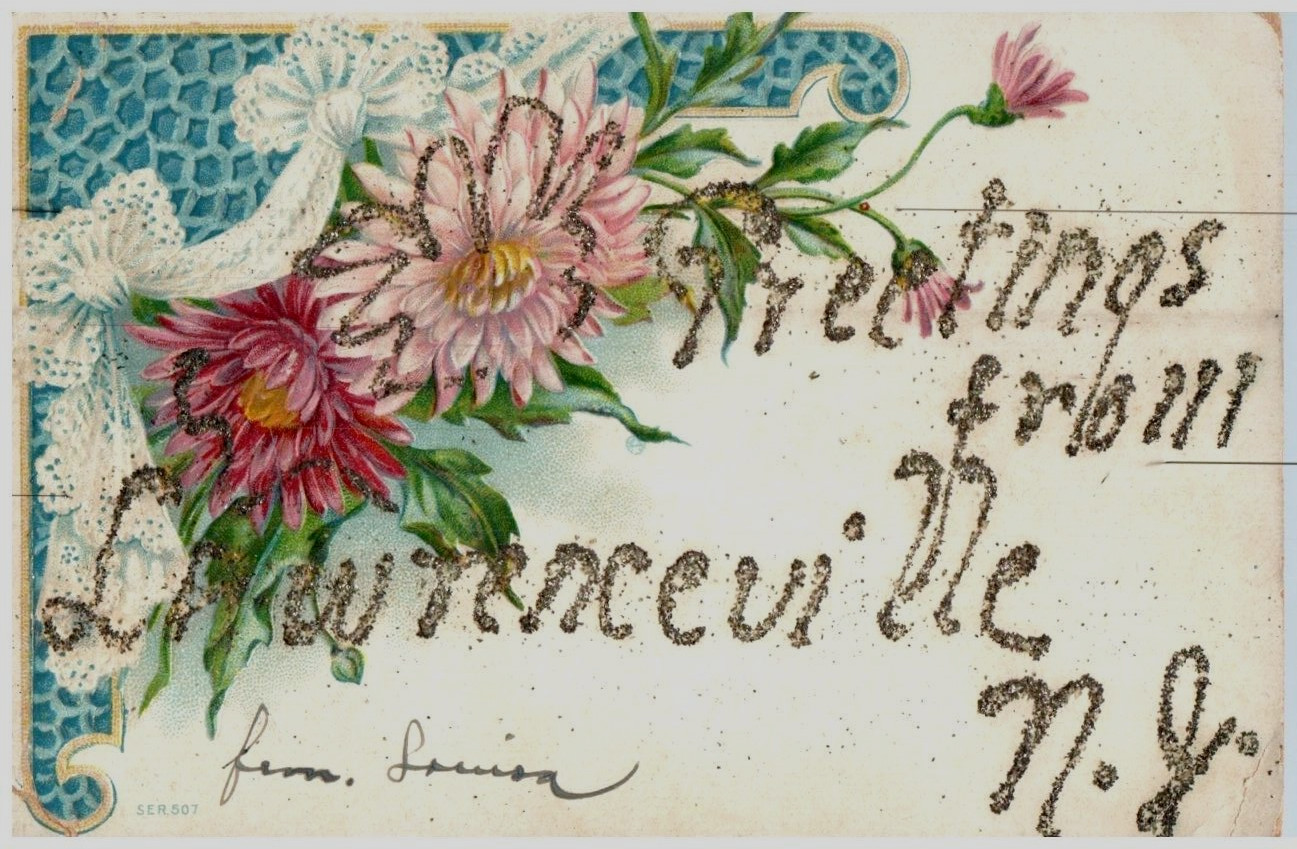 Greetings
from
Lawrenceville
N. J.
from. Louisa
SER. 507